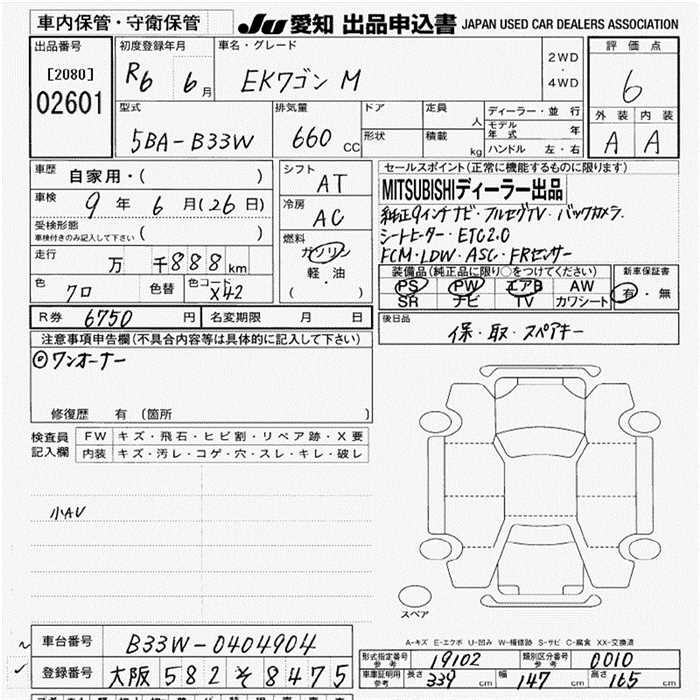 車内保管・守衛保管
JU 愛知 出品申込書 JAPAN USED CAR DEALERS ASSOCIATION
出品番号 初度登録年月 車名・グレード 2WD・4WD 評価点
[2080] 02601 R6 6月 EKワゴン M 6
型式 排気量 ドア 定員 人 ディーラー・並行 外装 内装
5BA-B33W 660 CC 形状 積載 kg モデル年式 年 A A
ハンドル 左・右
車歴 自家用・( ) シフト AT セールスポイント(正常に機能するものに限ります)
車検 9年 6月(26日) 冷房 AC MITSUBISHIディーラー出品
純正9インチナビ・フルセグTV・バックカメラ.
受検形態 車検付きのみ記入して下さい ( ) シートヒーター・ETC2.0
FCM・LDW・ASC・FRセンサー
走行 万 千888km 燃料 ガソリン 軽・油 ( )
装備品(純正品に限り○をつけてください) 新車保証書
PS PW エアB AW 有・無
SR ナビ TV カワシート
色 クロ 色替 色コード X42
R券 6750円 名変期限 月 日 後日品
保・取・スペアキー
注意事項申告欄(不具合内容等は具体的に記入して下さい)
◎ワンオーナー
修復歴 有 (箇所 )
検査員記入欄 FW キズ・飛石・ヒビ割・リペア跡・X要
内装 キズ・汚レ・コゲ・穴・スレ・キレ・破レ
小AU
スペア
A-キズ E-エクボ U-凹み W-補修跡 S-サビ C-腐食 XX-交換済
車台番号 B33W-0404904
登録番号 大阪 582 そ 8475
形式指定番号 参考 19102 類別区分番号 参考 0010
車庫証明用 参考 長さ 339 cm 幅 147 cm 高さ 165 cm